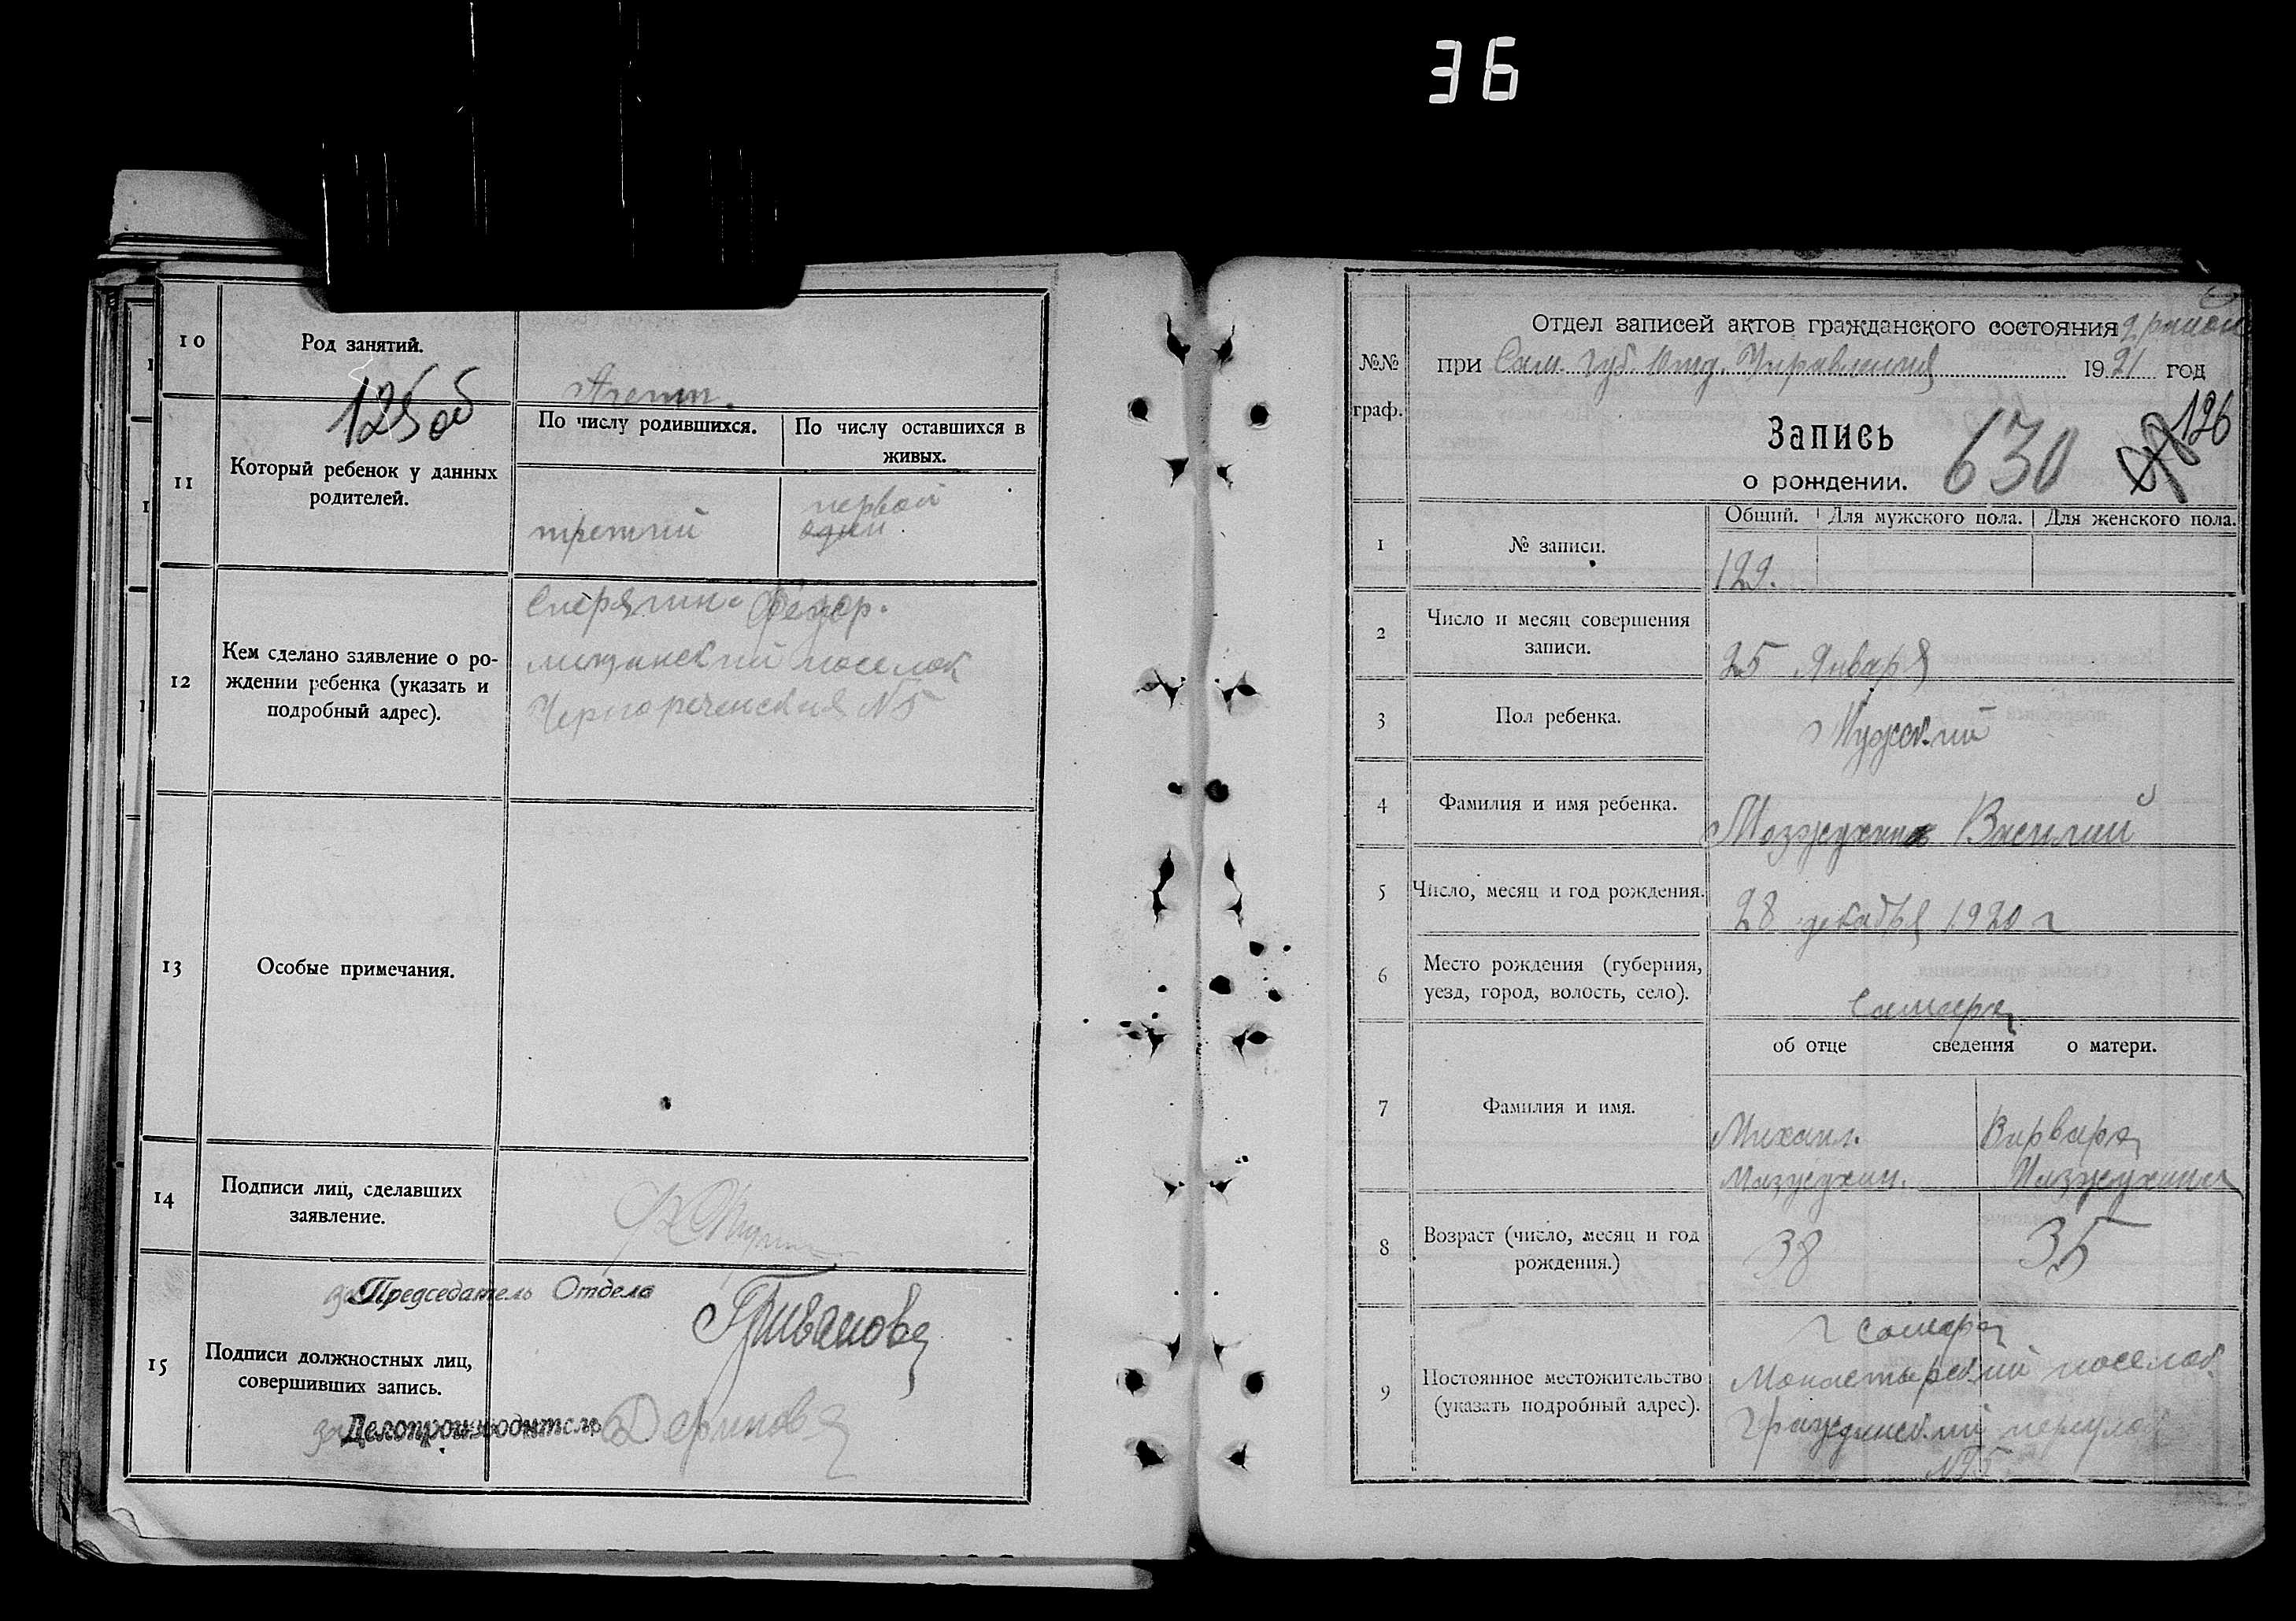 36
10
Род занятий.
Агент.
125 об
11
Который ребенок у данных
родителей.
По числу родившихся.
По числу оставшихся в
живых.
третий
первой
один
12
Кем сделано заявление о ро-
ждении ребенка (указать и
подробный адрес).
Федор.
мещанский поселок
Чернореченская №5
13
Особые примечания.
14
Подписи лиц, сделавших
заявление.
15
Подписи должностных лиц,
совершивших запись.
за Председатель Отдела
за Делопроизводитель
№№
граф.
Отдел записей актов гражданского состояния 2 район
при Сам. Губ. Отд. Управления 1921 год
Запись
о рождении.
630
126
1
№ записи.
Общий.
Для мужского пола.
Для женского пола.
129.
2
Число и месяц совершения
записи.
25 Января
3
Пол ребенка.
Мужский
4
Фамилия и имя ребенка.
Мозжухин Василий
5
Число, месяц и год рождения.
28 декабря 1920 г
6
Место рождения (губерния,
уезд, город, волость, село).
Самара
об отце сведения о матери.
7
Фамилия и имя.
Михаил.
Мазжухин.
Варвара
Мазжухина
8
Возраст (число, месяц и год
рождения.)
38
35
9
Постоянное местожительство
(указать подробный адрес).
г Самара
Монастырский поселок
Гражданский переулок
№5